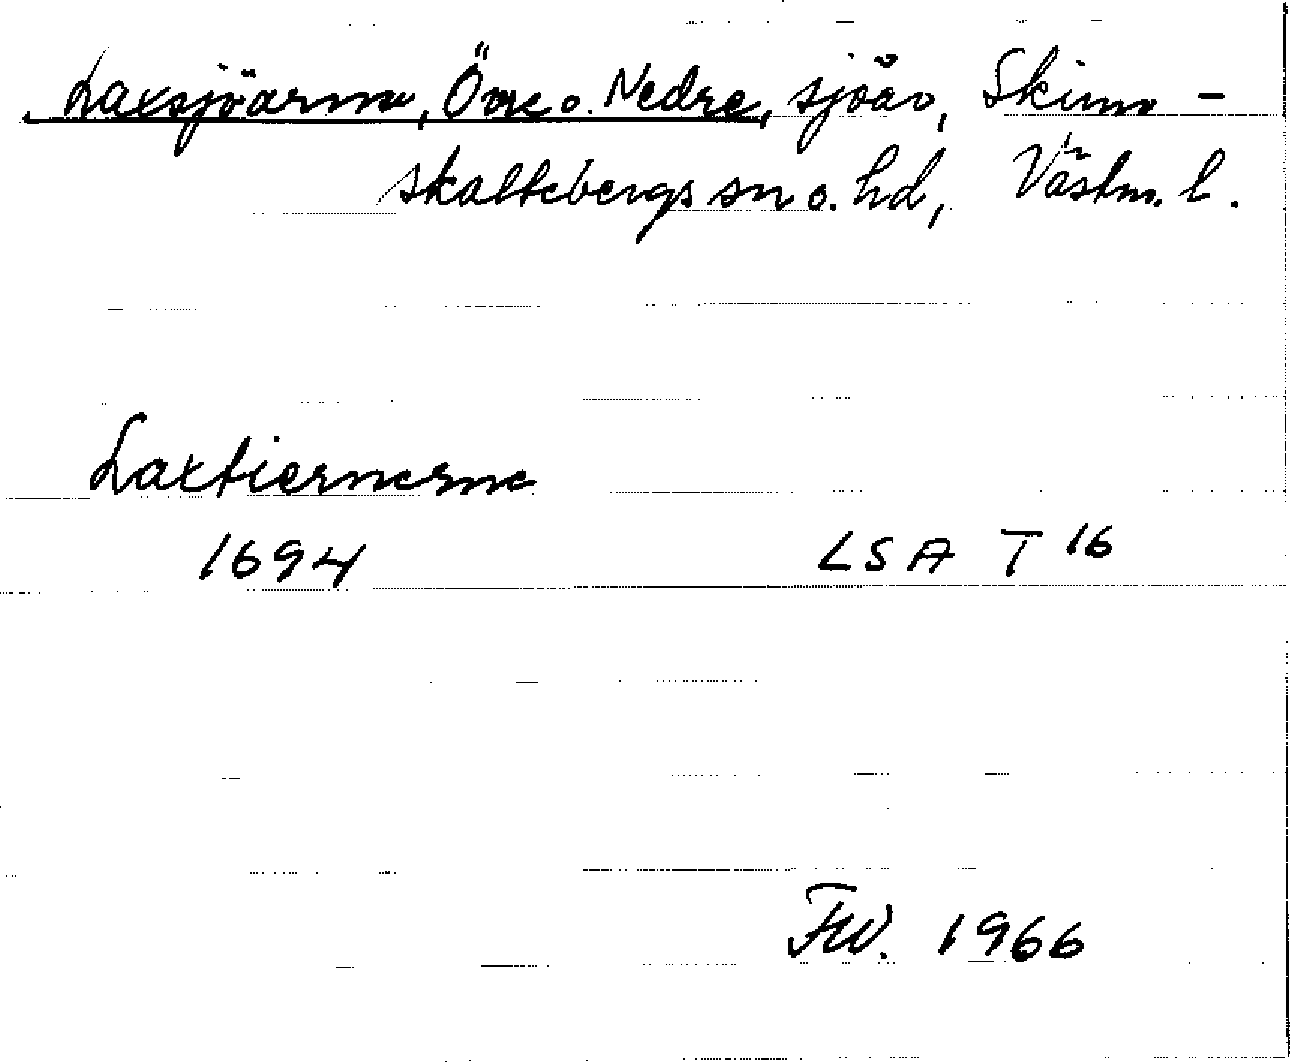 Laxsjöarna, Övre o. Nedre, sjöar, Skinn-
skattebergs sn o. hd, Västm. l.
Laxtiernerne
1694 LSA T 16
FW. 1966